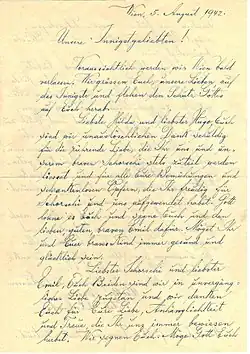 Wien, 5. August 1942.
Unsere Innigstgeliebten!
Voraussichtlich werden wir Wien bald
verlassen. Wir grüssen Euch, unsere Lieben, auf
das Innigste und flehen den Schutz Gottes
auf Euch herab.
Liebste Hilda und liebster Hugo, Euch
sind wir unauslöschlichen Dank schuldig
für die rührende Liebe, die Ihr uns und un-
serem braven Schorschi stets zuteil werden
liesset und für alle Eure Bemühungen und
schrankenlosen Opfern, die Ihr freudig für
Schorschi und uns aufgewendet habt. Gott
lohne es Euch und segne Euch und den
lieben, guten, braven Emil dafür. Möget Ihr
und Euer braves Kind immer gesund und
glücklich sein.
Liebster Schorschi und liebster
Emil, Euch Beiden sind wir in unvergäng-
licher Liebe zugetan und wir danken
Euch für Eure Liebe, Anhänglichkeit
und Treue, die Ihr uns immer bewiesen
habet. Wir segnen Euch. Möge Gott Euch